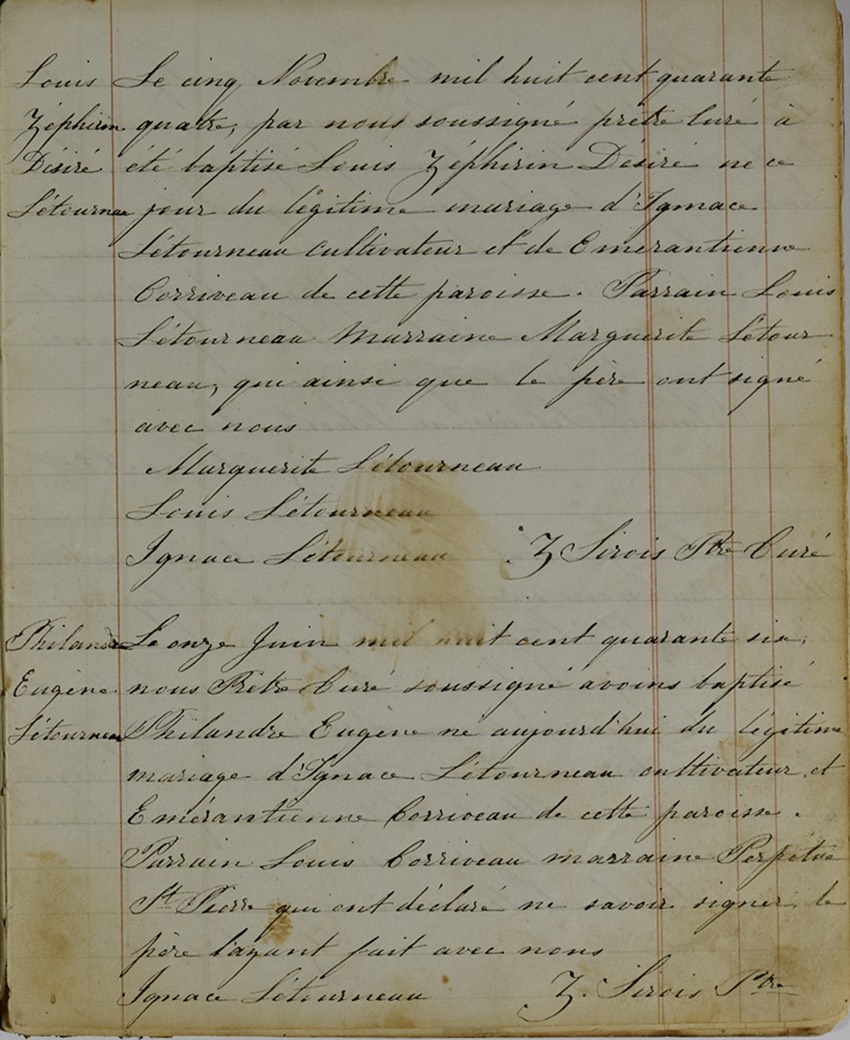 Louis Le cinq Novembre mil huit cent quarante
Zéphirin quatre, par nous soussigné prêtre curé à
Désiré été baptisé Louis Zéphirin Désiré né ce
Létourneau jour du légitime mariage d'Ignace
Létourneau cultivateur et de Emérantienne
Corriveau de cette paroisse. Parrain Louis
Létourneau Marraine Marguerite Létour
neau, qui ainsi que le père ont signé
avec nous
Marguerite Létourneau
Louis Létourneau
Ignace Létourneau Z Sirois Ptre Curé
Philandre Le onze Juin mil huit cent quarante six,
Eugène nous Prêtre Curé soussigné avoins baptisé
Létourneau Philandre Eugène né aujourd'hui du légitime
mariage d'Ignace Létourneau cultivateur et
Emérantienne Corriveau de cette paroisse.
Parrain Louis Corriveau marraine Perpétue
St Pierre qui ont déclaré ne savoir signer, le
père l'ayant fait avec nous
Ignace Létourneau Z. Sirois Ptre